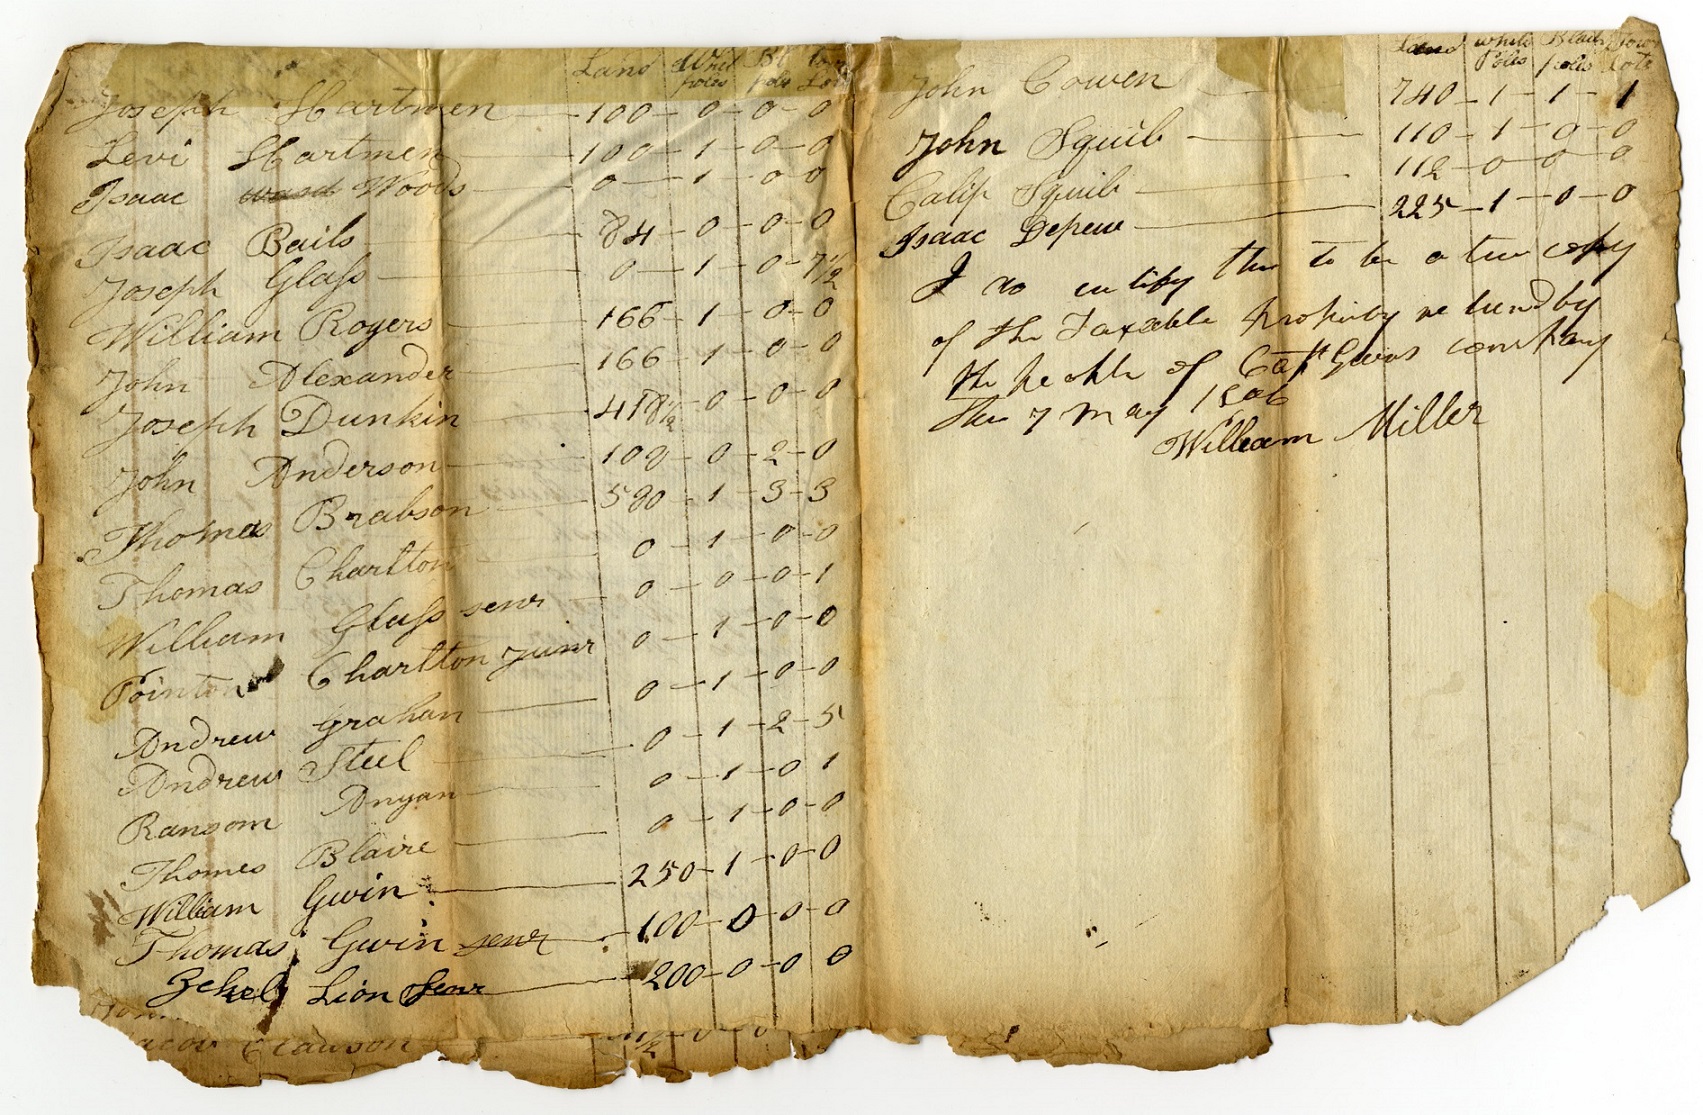 Land White poles Bl pole town Lots
Joseph Hartmen 100 - 0 - 0 - 0
Levi Hartmen 100 - 1 - 0 - 0
Isaac Woods 0 - 1 - 0 - 0
Isaac Bails 84 - 0 - 0 - 0
Joseph Glass 0 - 1 - 0 - 7 1/2
William Rogers 166 - 1 - 0 - 0
John Alexander 166 - 1 - 0 - 0
Joseph Dunkin 418 1/2 - 0 - 0 - 0
John Anderson 100 - 0 - 2 - 0
Thomas Brabson 590 - 1 - 3 - 3
Thomas Charlton 0 - 1 - 0 - 0
William Glass senr 0 - 0 - 0 - 1
Pointon Charlton Junr 0 - 1 - 0 - 0
Andrew Grahan 0 - 1 - 0 - 0
Andrew Steel 0 - 1 - 2 - 5
Ransom Anyan 0 - 1 - 0 1
Thomes Blaire 0 - 1 - 0 - 0
William Gwin 250 - 1 - 0 - 0
Thomas Gwin senr 100 - 0 - 0 - 0
Zekel Lion Senr 200 - 0 - 0 0
Clawson 1/2 - 0 - 0
Land white Poles Black poles Town lots
John Cowen 740 - 1 - 1 - 1
John Squib 110 - 1 - 0 - 0
Calip Squib 112 - 0 - 0 - 0
Isaac Depew 225 - 1 - 0 - 0
I do certify this to be a true copy
of the Taxable property returnd by
the people of Capt Gwins company
this 7 May 1806
William Miller